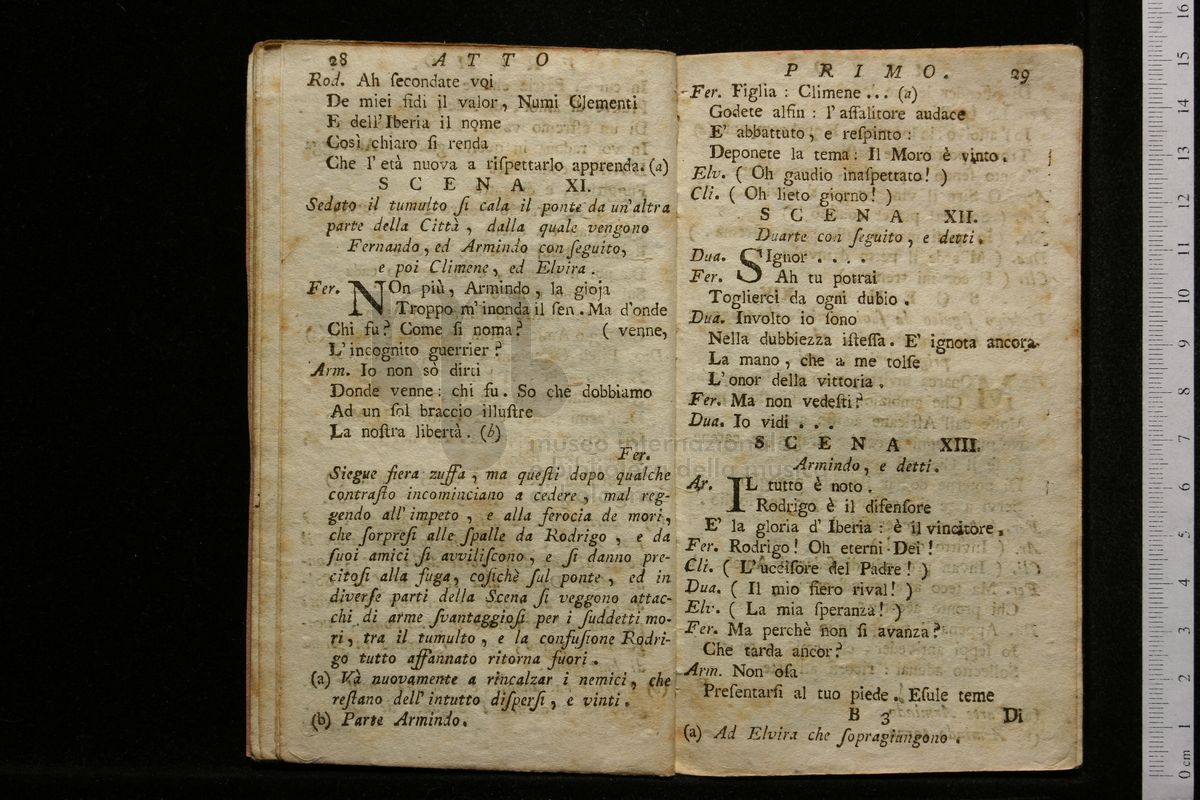 28 A T T O
Rod. Ah ſecondate voi
De miei fidi il valor, Numi Clementi
E dell' Iberia il nome
Così chiaro ſi renda
Che l' età nuova a riſpettarlo apprenda. (a)
S C E N A XI.
Sedato il tumulto ſi cala il ponte da un' altra
parte della Città, dalla quale vengono
Fernando, ed Armindo con ſeguito,
e poi Climene, ed Elvira.
Fer. NOn più, Armindo, la gioja
Troppo m' inonda il ſen. Ma d'onde
Chi fu? Come ſi noma? ( venne,
L' incognito guerrier?
Arm. Io non sò dirti
Donde venne: chi fu. So che dobbiamo
Ad un ſol braccio illuſtre
La noſtra libertà. (b)
Fer.
Siegue fiera zuffa, ma queſti dopo qualche
contraſto incominciano a cedere, mal reg-
gendo all' impeto, e alla ferocia de mori,
che ſorpreſi alle ſpalle da Rodrigo, e da
ſuoi amici ſi avviliſcono, e ſi danno pre-
citoſi alla fuga, coſichè ſul ponte, ed in
diverſe parti della Scena ſi veggono attac-
chi di arme ſvantaggioſi per i ſuddetti mo-
ri, tra il tumulto, e la confuſione Rodri-
go tutto affannato ritorna fuori.
(a) Và nuovamente a rincalzar i nemici, che
reſtano dell' intutto diſperſi, e vinti.
(b) Parte Armindo.
P R I M O. 29
Fer. Figlia: Climene... (a)
Godete alfin: l' aſſalitore audace
E' abbattuto, e reſpinto:
Deponete la tema: Il Moro è vinto.
Elv. ( Oh gaudio inaſpettato! )
Cli. ( Oh lieto giorno! )
S C E N A XII.
Duarte con ſeguito, e detti.
Dua. SIgnor . . . .
Fer. Ah tu potrai
Toglierci da ogni dubio.
Dua. Involto io ſono
Nella dubbiezza iſteſſa. E' ignota ancora
La mano, che a me tolſe
L' onor della vittoria.
Fer. Ma non vedeſti?
Dua. Io vidi . . .
S C E N A XIII.
Armindo, e detti.
Ar. IL tutto è noto.
Rodrigo è il difenſore
E' la gloria d' Iberia: è il vincitore.
Fer. Rodrigo! Oh eterni Dei!
Cli. ( L' ucciſore del Padre! )
Dua. ( Il mio fiero rival! )
Elv. ( La mia ſperanza! )
Fer. Ma perchè non ſi avanza?
Che tarda ancor?
Arm. Non oſa
Preſentarſi al tuo piede. Eſule teme
B 3 Di
(a) Ad Elvira che ſopragiungono.
museo internazionale
della musica
0 cm 1 2 3 4 5 6 7 8 9 10 11 12 13 14 15 16